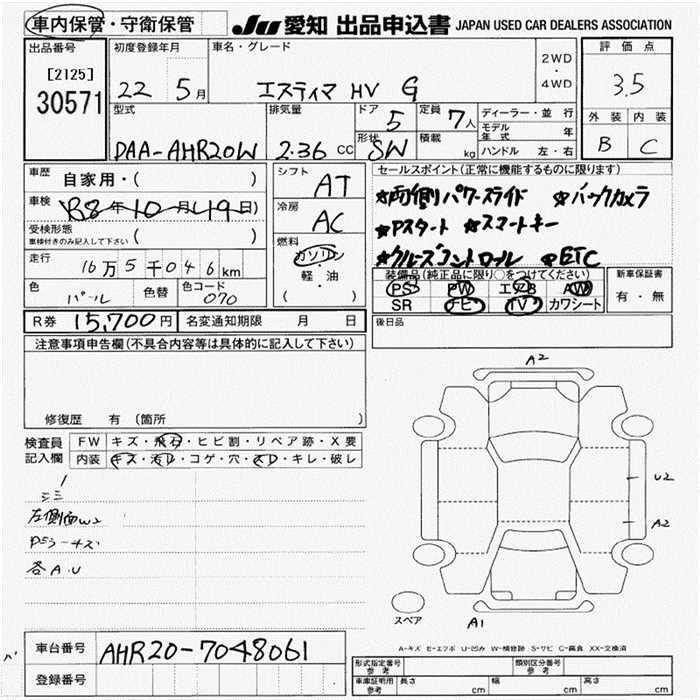 車内保管・守衛保管
JU 愛知 出品申込書 JAPAN USED CAR DEALERS ASSOCIATION
出品番号
[2125]
30571
初度登録年月
22 5月
車名・グレード
エスティマ HV G
2WD
・
4WD
評価点
3.5
外装 内装
B C
型式
DAA-AHR20W
排気量
2.36 CC
ドア
5
形状
SW
定員
7人
積載
kg
ディーラー・並行
モデル年式 年
ハンドル 左・右
車歴
自家用・( )
車検
R3年10月(19日)
受検形態
車検付きのみ記入して下さい ( )
走行
16万5千046km
色
パール
色替
色コード
070
シフト
AT
冷房
AC
燃料
ガソリン
軽・油
( )
セールスポイント(正常に機能するものに限ります)
★両側パワースライド ★バックカメラ
★Pスタート ★スマートキー
★クルーズコントロール ★ETC
装備品(純正品に限り○をつけてください)
PS PW エアB AW
SR ナビ TV カワシート
新車保証書
有・無
R券 15,700円 名変通知期限 月 日
後日品
注意事項申告欄(不具合内容等は具体的に記入して下さい)
修復歴 有 (箇所 )
検査員
記入欄
FW キズ・飛石・ヒビ割・リペア跡・X要
内装 キズ・汚レ・コゲ・穴・スレ・キレ・破レ
左側面W2
各A.U
A2
U2
A2
A1
スペア
A-キズ E-エクボ U-凹み W-補修跡 S-サビ C-腐食 XX-交換済
車台番号 AHR20-7048061
登録番号
形式指定番号
参考
類別区分番号
参考
車庫証明用
参考
長さ cm 幅 cm 高さ cm